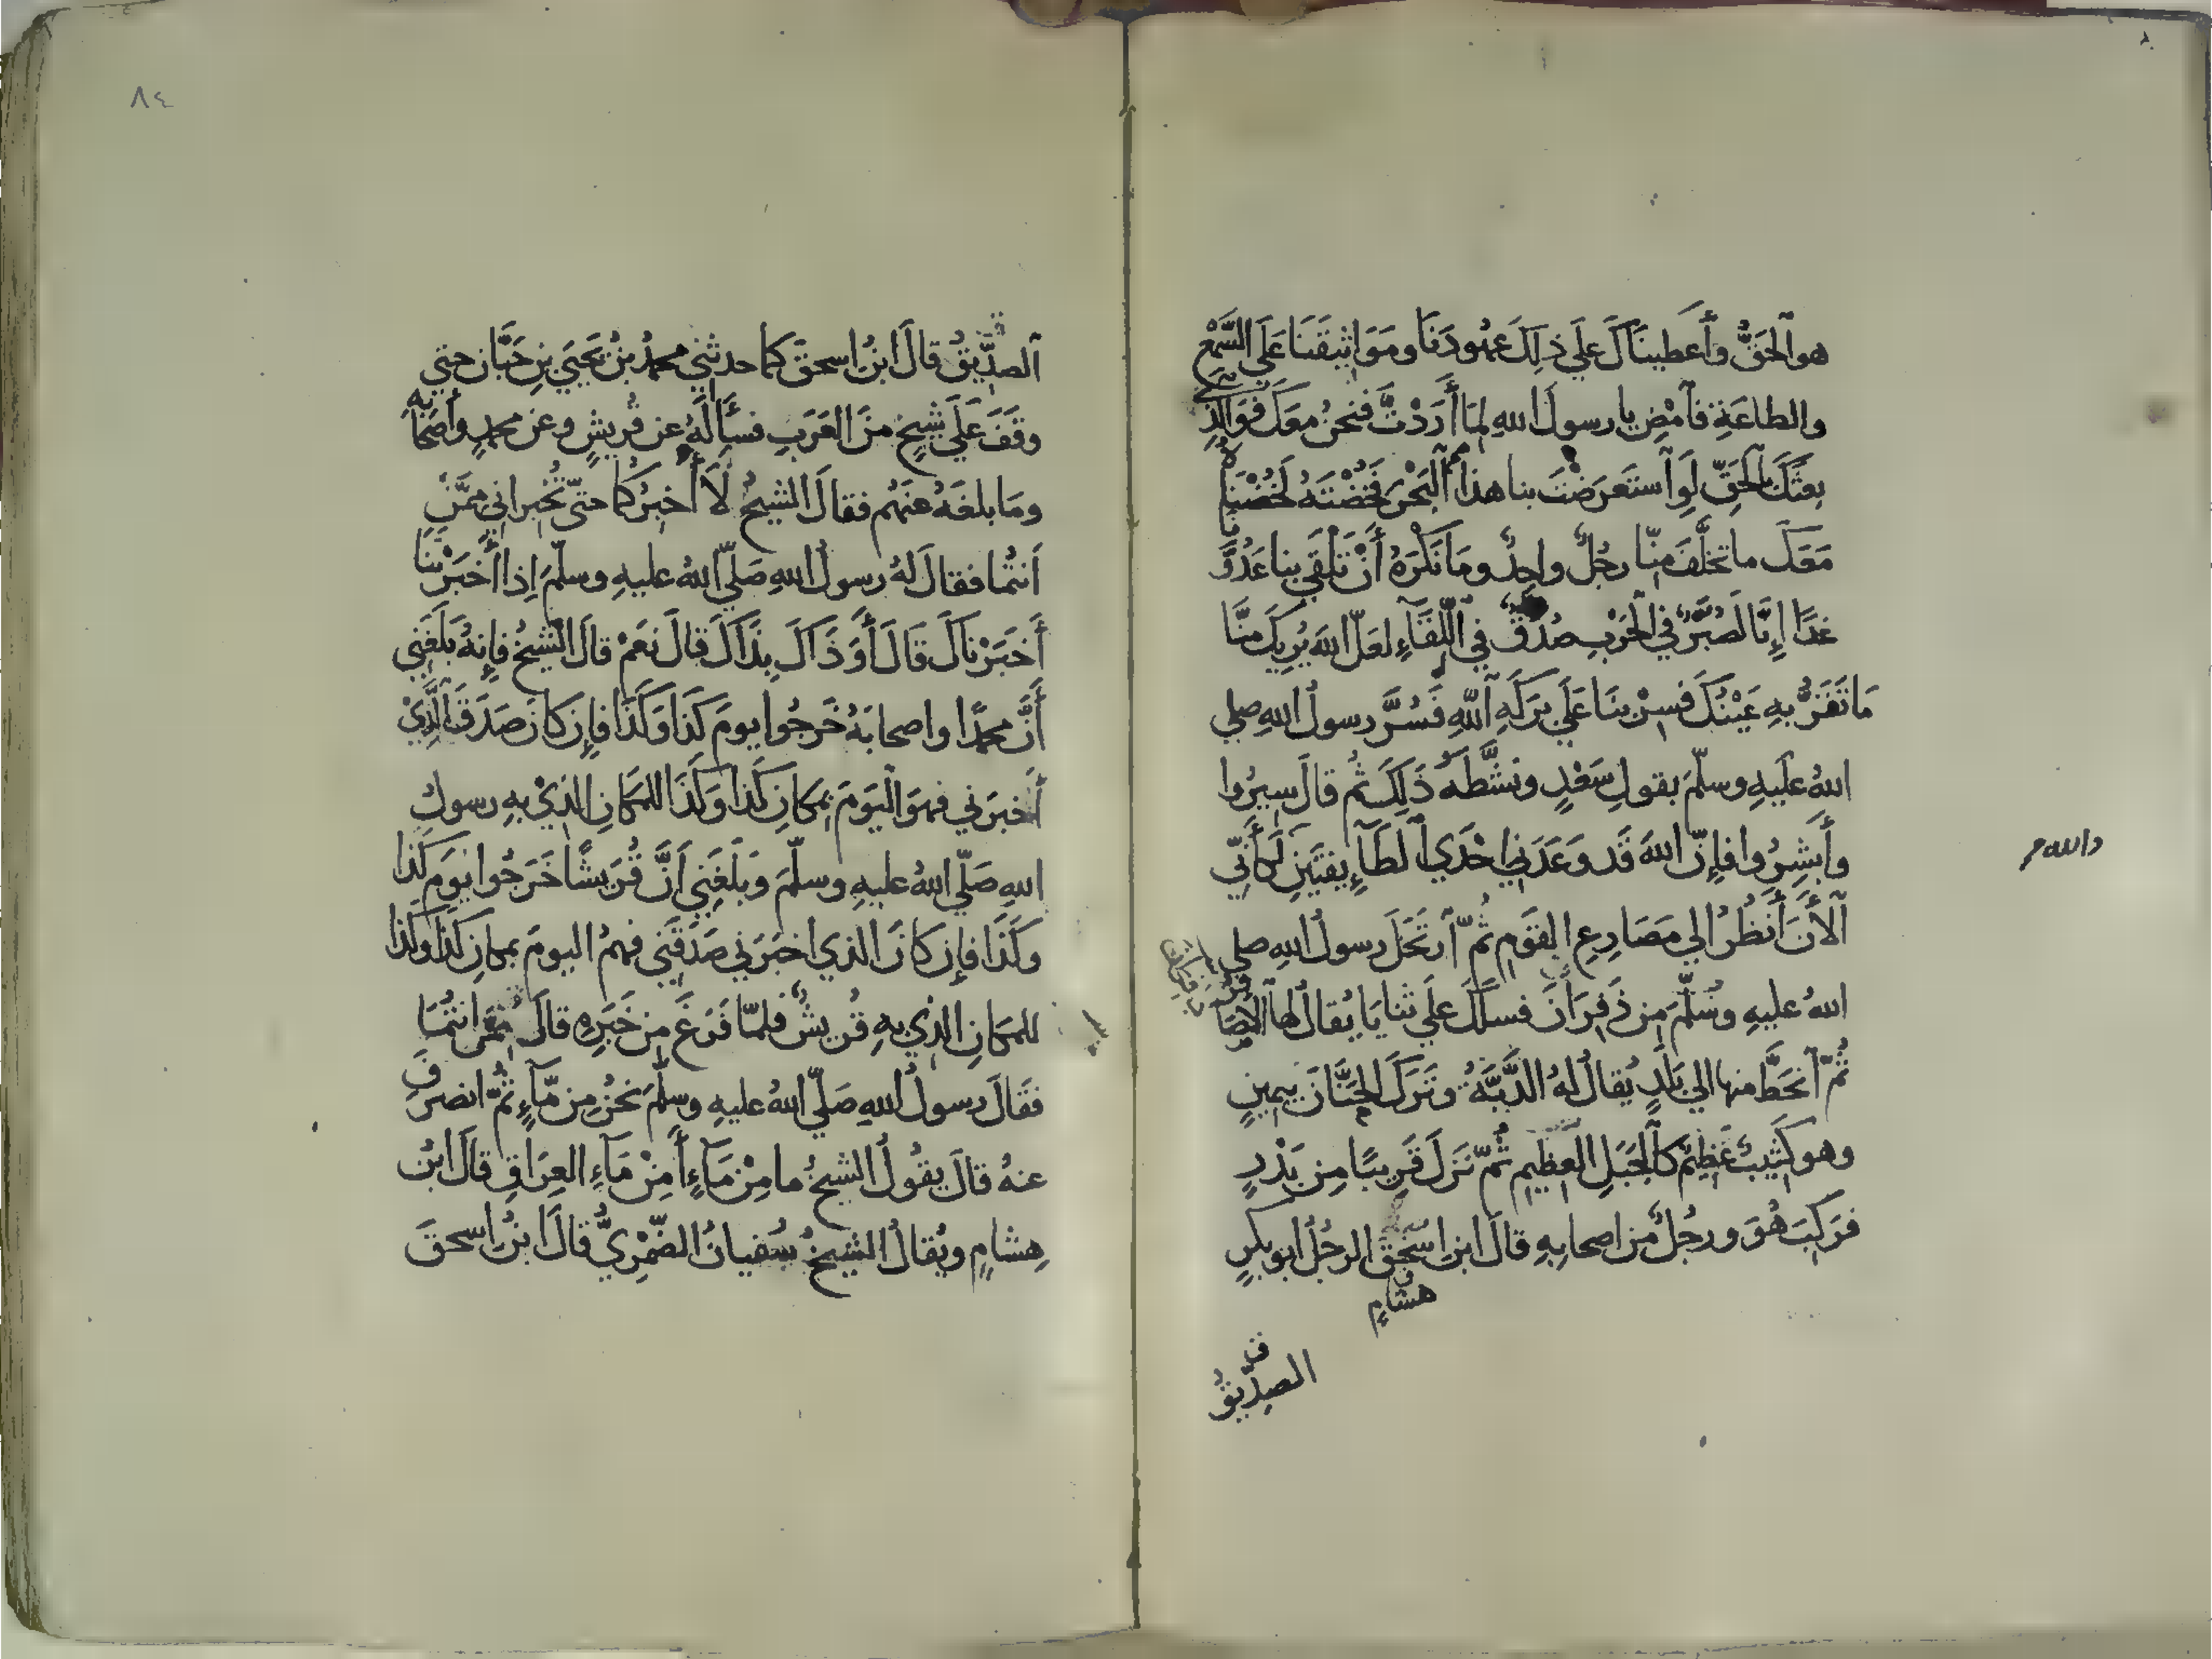 هو الحَقُّ وأَعطيناكَ علي ذلِكَ عهُودَنا ومَوَاثيقَنَا عَلَي السَّمْعِ
والطاعَةِ فآمْضِ يا رسولَ اللهِ لِمَا أَرَدْتَّ فنحنُ معَكَ فَوَالَّذِي
بعثَكَ بالحَقِّ لَوِ آستَعرَضْتَ بنا هذا آلبَحْرَ فَخُضْتَهُ لَخُضْنَاهُ
مَعَكَ ما تخلَّفَ مِنّا رجُلٌ واحِدٌ ومَا نَكْرَهُ أَنْ تَلْقَي بنا عَدُوَّنَا
غدًا إِنَّا لَصُبُرٌ في الحَرْبِ صُدُقٌ في اللِّقَآءِ لعَلَّ اللهَ يُرِيكَ مِنَّا
مَا تَقَرُّ بهِ عَيْنُكَ فسِرْ بنَا عَلَي بَرَكَةِ آللهِ فَسُرَّ رسولُ اللهِ صلي
اللهُ علَيهِ وسلَّمَ بقولِ سَعْدٍ ونشَّطَهُ ذَلِكَ ثُم قالَ سيرُوا
وأَبشِرُوا فإِنّ اللهَ قَد وعَدَني إحْدَي آلطَآئِفَتَينِ لَكأَنّي
والله م
آلأَنَ أَنظُرُ الي مَصَارِعِ القَومِ ثُمّ آرتَحَلَ رسولُ اللهِ صلي
اللهُ عليهِ وسُلَّمَ مِن ذَفِرَانَ فسلَكَ علَي ثنايَا يُقالُ لها آلأَصَافِرُ
ثُمّ آنحَطَّ منها الي بَلَدٍ يُقالُ لهُ الدَّبَّةُ وتَرَكَ الحَنَّانَ بيَمِينٍ
وهو كَثِيبٌ عَظِيمٌ كآلجَبَلِ العَظِيمِ ثُمّ نَزَلَ قَرِيبًا مِن بَدْرٍ
فرَكِبَ هُوَ ورجُلٌ مِن اصحابِهِ قالَ ابن اسْحٰقَ الرجُلُ ابو بكرٍ
هشامٍ
الصِدِّيقُ
٨٤
آلصدِّيقُ قالَ ابنُ اسحقَ كما حدثَني محمدُ بنُ يَحيَي بنِ حَبَّان حتي
وقَفَ عَلَي شَيخٍ مِنَ العَرَبِ فسأَلَهُ عن قُريشٍ وعن محمدٍ وأَصحَابِهِ
ومَا بلغَهُ عنهُم فقالَ الشيخُ لَا أُخبرُكُما حتّي تُخبراني مِمَّن
أنتُما فقالَ لهُ رسولُ اللهِ صَلّي اللهُ عليهِ وسلّمَ إِذا أَخبَرْتَنَا
أَخبَرْناكَ قَالَ أَوَذَاكَ بِذَاكَ قالَ نعَمْ قالَ الشيخُ فإِنهُ بَلَغَنِي
أَنَّ محمدًا واصحابَهُ خَرجُوا يومَ كَذَا وَكَذَا فإِن كانَ صَدَقَ الَّذِيْ
أَخبَرَني فهوَ اليَومَ بمكانِ كَذا وكَذَا للمكانِ الذيْ بهِ رسولُ
اللهِ صَلّي اللهُ عليهِ وسلّمَ وبَلَغَنِي اَنَّ قُرَيشًا خَرَجُوا يومَ كَذا
وكَذَا فإِن كانَ الذي اخبَرَني صَدَقَنِي فهمُ اليومَ بمكانِ كَذَا وكذا
للمكانِ الذي بهِ قُريشٌ فلمّا فَرَغَ مِن خَبَرِهِ قالَ مِمَّن انتُمَا
فقالَ رسولُ اللهِ صَلّي اللهُ عليهِ وسلّمَ نحنُ مِن مّآءٍ ثُمّ انصرَفَ
عنهُ قالَ يقُولُ الشيخُ ما مِنْ مَآءٍ أَمِنْ مَآءِ العِرَاقِ قالَ ابنُ
هِشامٍ ويُقالُ الشيخُ سُفيانُ الضّمْرِيُّ قالَ ابنُ اسحقَ